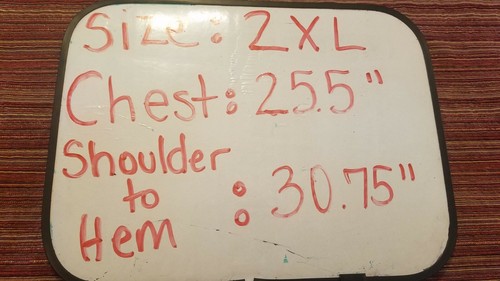 Size: 2XL
Chest: 25.5"
Shoulder
to
Hem : 30.75"